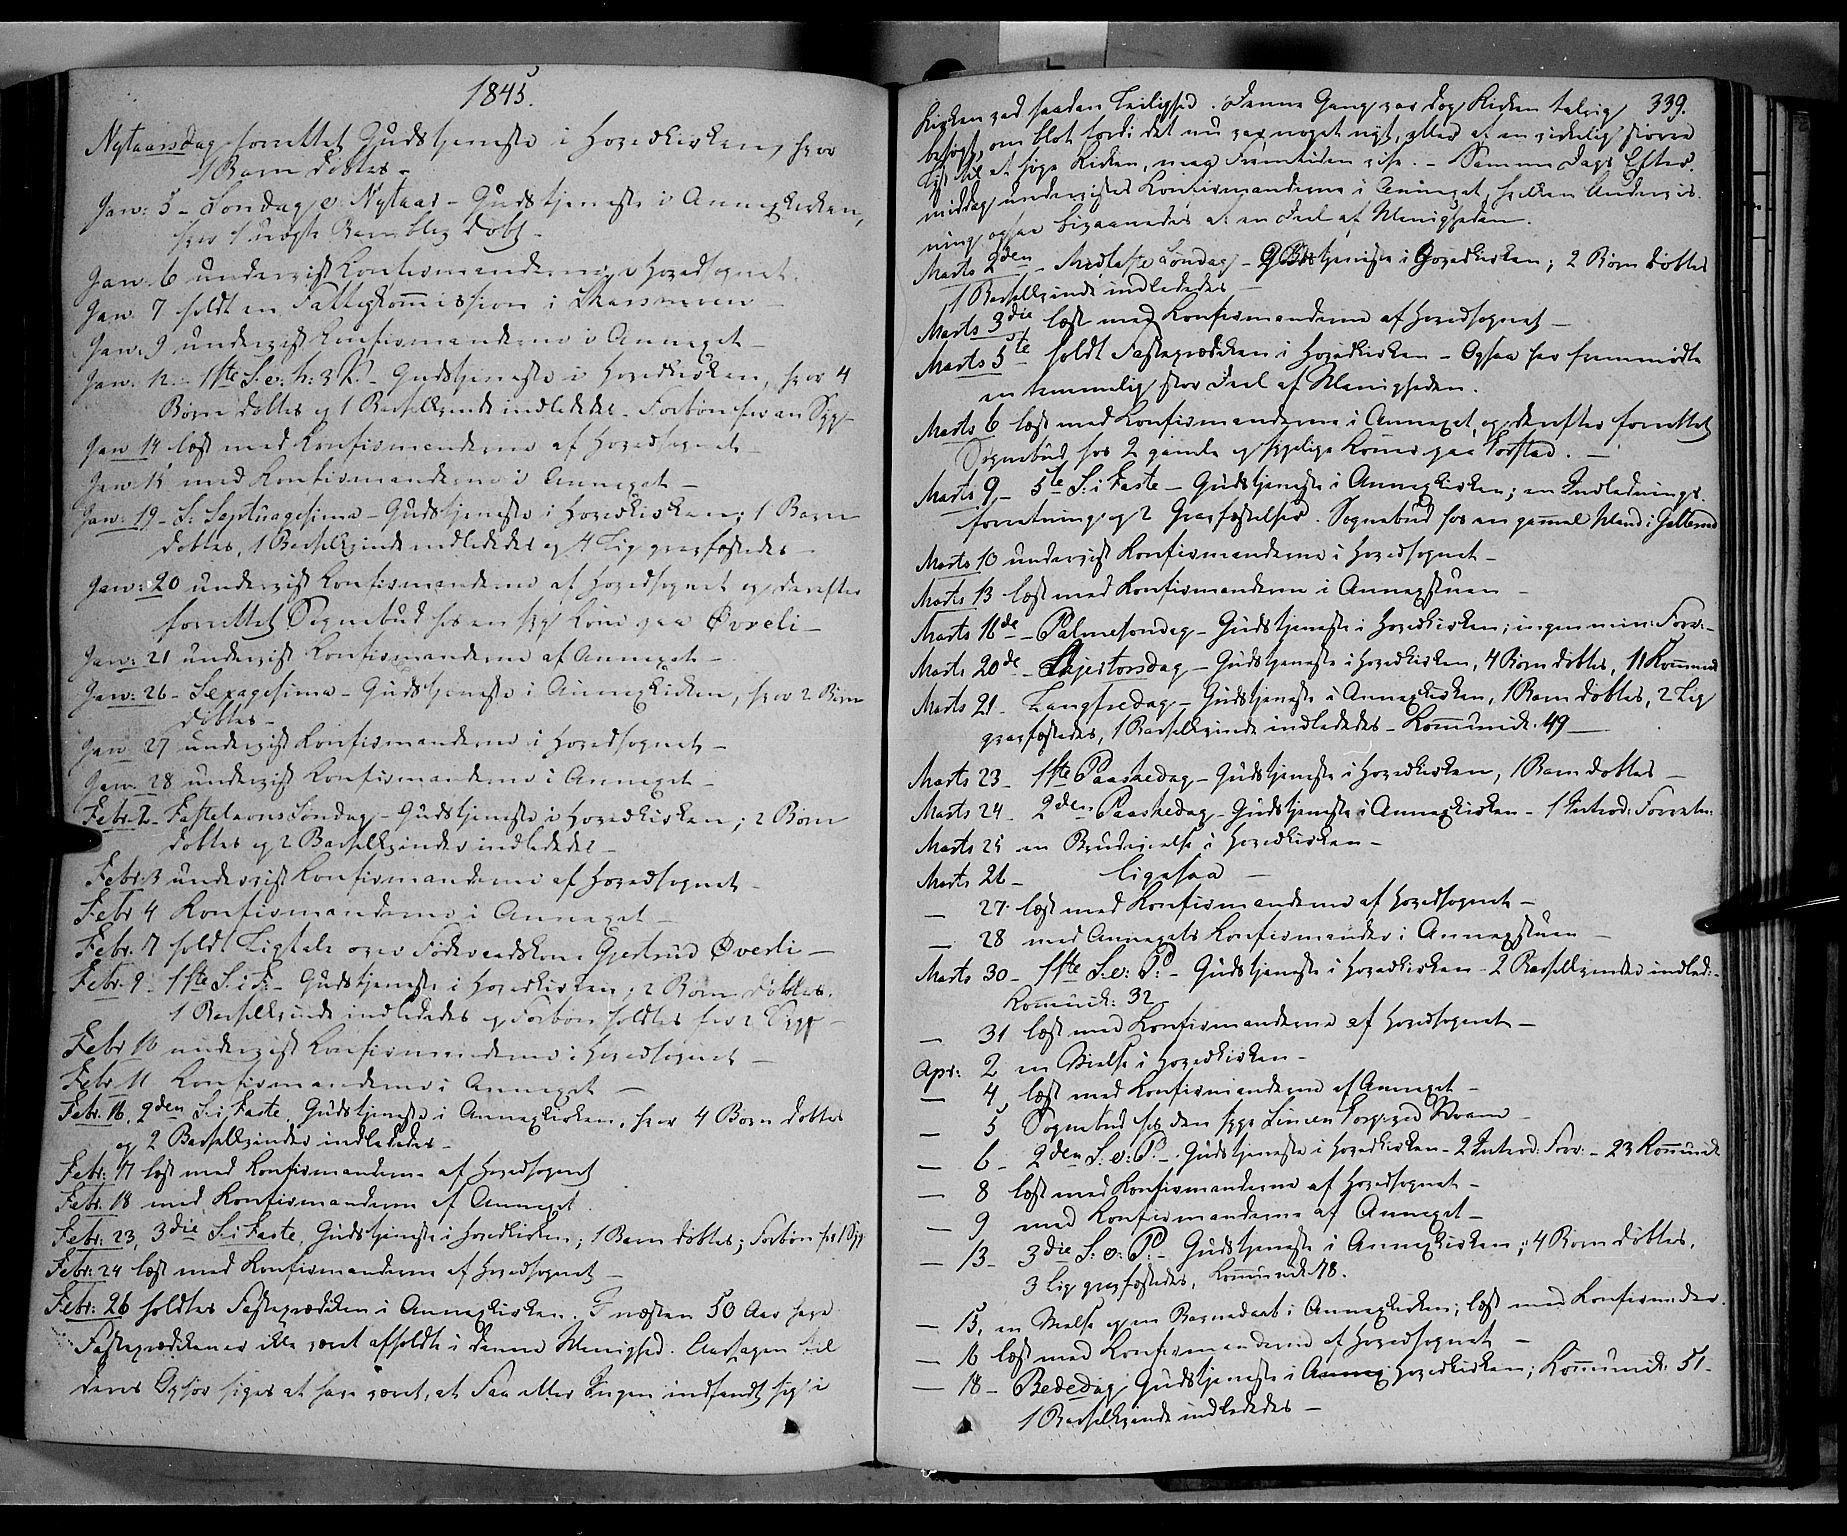 1845.
Nytaarsdag forrettet Gudstjeneste i Hovedkirken, hvor
4 Børn døbtes -
Janv: 5 - Søndag e. Nytaar - Gudstjeneste i Annexkirken,
hvor 1 uægte Barn blev døbt -
Janv. 6 underviist Konfirmanderne i Hovedsognet.
Janv. 7 holdt en Fattigkommission i
Janv. 9 underviist Konfirmanderne i Annexet -
Janv. 12 - 1ste S. e. h. 3 K. - Gudstjeneste i Hovedkirken, hvor 4
Børn døbtes og 1 Barselkvinde indlededes - Forbøn for en Syg -
Janv 14 læst med Konfirmanderne af Hovedsognet -
Janv: 15 med Konfirmanderne i Annexet -
Janv: 19 - S. Septuagesima - Gudstjeneste i Hovedkirken; 1 Barn
døbtes, 1 Barselkvinde indlededes og 4 Lig gravfæstedes -
Janv: 20 underviist Konfirmanderne af Hovedsognet og derefter
forrettet Sognebud hos en syg Kone paa Øverli -
Janv: 21 underviist Konfirmanderne af Annexet -
Janv: 26 - Sexagesima - Gudstjeneste i Annexkirken, hvor 2 Børn
døbtes -
Janv 27 underviist Konfirmanderne i Hovedsognet -
Janv. 28 underviist Konfirmanderne i Annexet -
Febr. 2 - Fastelavns Søndag - Gudstjeneste i Hovedkirken; 2 Børn
døbtes og 2 Barselkvinder indlededes -
Febr. 3 underviist Konfirmanderne af Hovedsognet -
Febr 4 Konfirmanderne i Annexet -
Febr. 7 holdt Ligtale over Føderaadskone Gjertrud Øverli -
Febr. 9 - 1ste S. i F. - Gudstjeneste i Hovedkirken, 2 Børn døbtes.
1 Barselkvinde indlededes og Forbøn holdtes for 2 Syge -
Febr 10 underviist Konfirmanderne i Hovedsognet -
Febr. 11 Konfirmanderne i Annexet -
Febr. 16, 2den S. i Faste, Gudstjeneste i Annexkirken, hvor 4 Børn døbtes
og 2 Barselkvinder indlededes -
Febr: 17 læst med Konfirmanderne af Hovedsognet
Febr. 18 med Konfirmanderne af Annexet.
Febr: 23, 3die S. i Faste, Gudstjeneste i Hovedkirken; 1 Barn døbtes; Forbøn for 1 Syg
Febr: 24 læst med Konfirmanderne af Hovedsognet -
Febr: 26 holdtes Fasteprædiken i Annexkirken. I næsten 50 Aar have
Fasteprædikener ikke været afholdte i denne Menighed. Aarsagen til
deres Ophør siges at have været, at Faa eller Ingen indfandt sig i
339.
Kirken ved saadan Leilighed. Denne Gang var dog Kirken talrig
besøgt, om blot fordi det nu var noget nyt, eller af en virkelig større
Lyst til at søge Kirken, maa Fremtiden vise. - Samme Dags Efter-
middag undervistes Konfirmanderne i Annexet, hvilken Undervis-
ning ogsaa bivaanedes af en Deel af Menigheden.
Marts 2den - Midfaste Søndag - Gudstjeneste i Hovedkirken; 2 Børn døbtes
1 Barselkvinde indlededes -
Marts 3die læst med Konfirmanderne af Hovedsognet -
Marts 5te holdt Fasteprædiken i Hovedkirken - Ogsaa her fremmødte
en temmelig stor Deel af Menigheden.
Marts 6 læst med Konfirmanderne i Annexet, og derefter forrettet
Sognebud hos 2 gamle og sygelige Koner paa -
Marts 9, - 5te S. i Faste - Gudstjeneste i Annexkirken; en Indlednings-
forretning og 2 Gravfæstelser. Sognebud hos en gammel Mand i
Marts 10 underviist Konfirmanderne i Hovedsognet -
Marts 13 læst med Konfirmanderne i Annexstuen -
Marts 16de - Palmesøndag - Gudstjeneste i Hovedkirken; ingen min: Forr: -
Marts 20de - Skjertorsdag - Gudstjeneste i Hovedkirken, 4 Børn døbtes, 11 Kommunik
Marts 21 - Langfredag - Gudstjeneste i Annexkirken, 1 Barn døbtes, 2 Lig
gravfæstedes, 1 Barselkvinde indlededes - Kommunik: 49 -
Marts 23 - 1ste Paaskedag - Gudstjeneste i Hovedkirken, 1 Barn døbtes -
Marts 24 - 2den Paaskedag - Gudstjeneste i Annexkirken - 1 Introd: Forretn:
Marts 25 en Brudevielse i Hovedkirken -
Marts 26 - ligesaa -
- 27 læst med Konfirmanderne af Hovedsognet -
- 28 med Annexets Konfirmander i Annexstuen -
Marts 30 - 1ste S. e. P. - Gudstjeneste i Hovedkirken - 2 Barselkvinder indled: -
Kommunik: 32
- 31 læst med Konfirmanderne af Hovedsognet -
Apr: 2 en Vielse i Hovedkirken -
- 4 læst med Konfirmanderne af Annexet -
- 5 Sognebud hos den syge
- 6 - 2den S. e. P. - Gudstjeneste i Hovedkirken - 2 Introd: Forr: - 23 Kommunik
- 8 læst med Konfirmanderne af Hovedsognet -
- 9 med Konfirmanderne af Annexet -
- 13 - 3die S. e. P. - Gudstjeneste i Annexkirken; 4 Børn døbtes,
3 Lig gravfæstedes, Kommunik: 78.
- 15, en Vielse og en Barnedaab i Annexkirken; læst med Konfirmander.
- 16 læst med Konfirmanderne af Hovedsognet -
- 18 - Bededag Gudstjeneste i Annex Hovedkirken; Kommunik: 51 -
1 Barselkvinde indlededes -